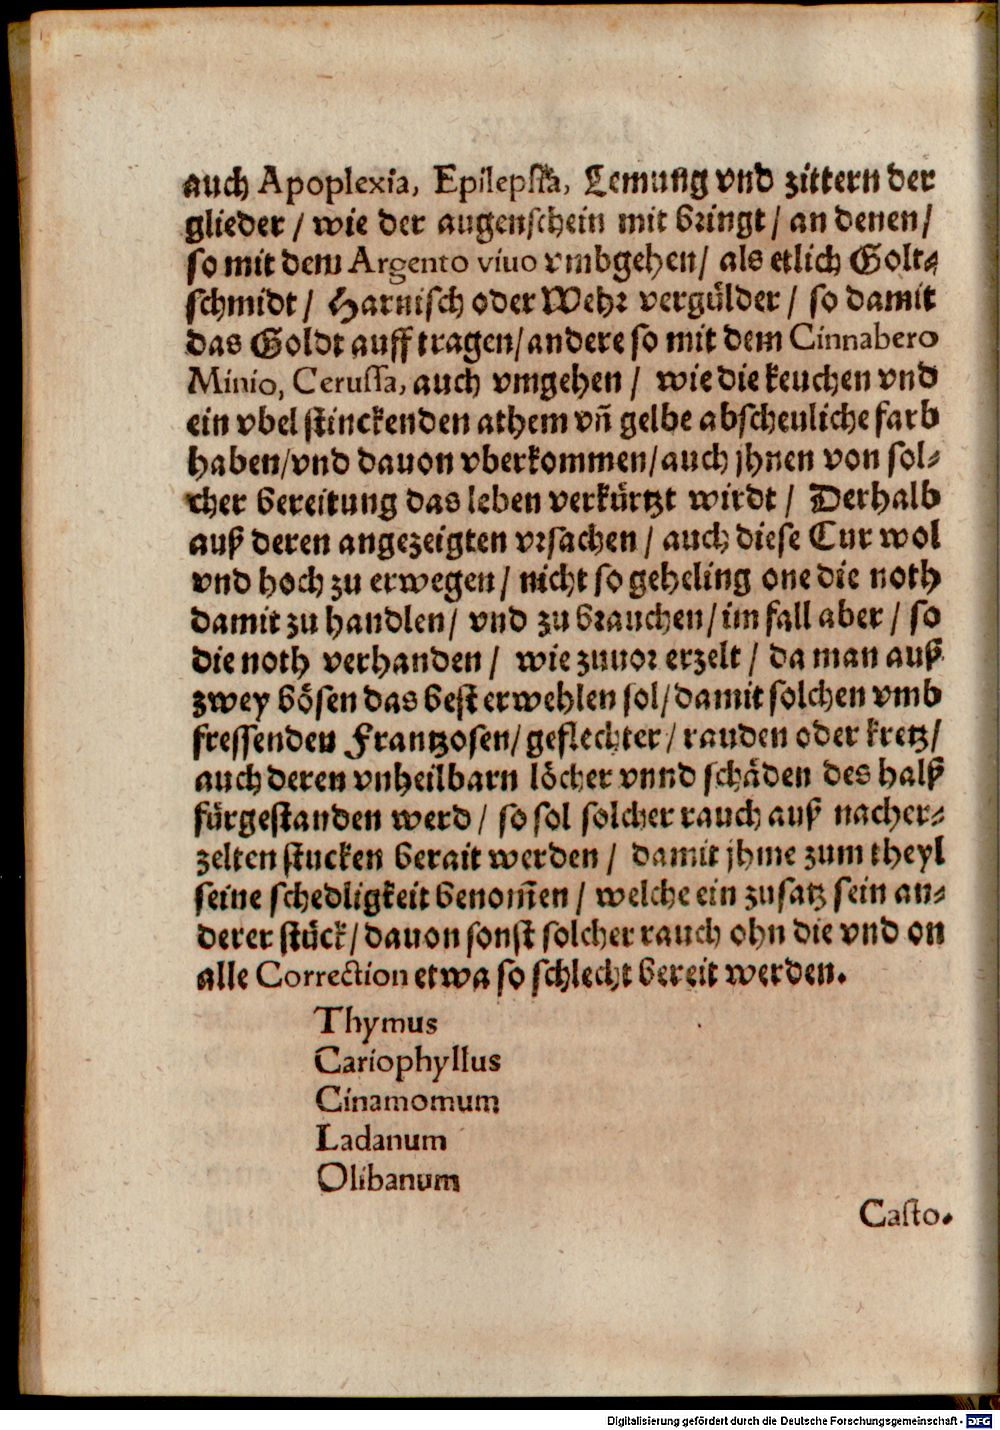 auch Apoplexia, Epilepſia, Lemung vnd zittern der
glieder / wie der augenſchein mit bringt / an denen /
ſo mit dem Argento viuo vmbgehen / als etlich Golt⸗
ſchmidt / Harniſch oder Wehr vergülder / ſo damit
das Goldt auff tragen / andere ſo mit dem Cinnabero
Minio, Ceruſſa, auch vmgehen / wie die keuchen vnd
ein vbel ſtinckenden athem vñ gelbe abſcheuliche farb
haben / vnd dauon vberkommen / auch jhnen von ſol⸗
cher bereitung das leben verkürtzt wirdt / Derhalb
auß deren angezeigten vrſachen / auch dieſe Cur wol
vnd hoch zu erwegen / nicht ſo geheling one die noth
damit zu handlen / vnd zu brauchen / im fall aber / ſo
die noth verhanden / wie zuuor erzelt / da man auß
zwey böſen das beſt erwehlen ſol / damit ſolchen vmb
freſſenden Frantzoſen / geflechter / rauden oder kretz /
auch deren vnheilbarn löcher vnnd ſchäden des halß
fürgeſtanden werd / ſo ſol ſolcher rauch auß nacher⸗
zelten ſtucken berait werden / damit jhme zum theyl
ſeine ſchedligkeit benom̃en / welche ein zuſatz ſein an⸗
derer ſtück / dauon ſonſt ſolcher rauch ohn die vnd on
alle Correction etwa ſo ſchlecht bereit werden.
Thymus
Cariophyllus
Cinamomum
Ladanum
Olibanum
Caſto⸗
Digitalisierung gefördert durch die Deutsche Forschungsgemeinschaft - DFG